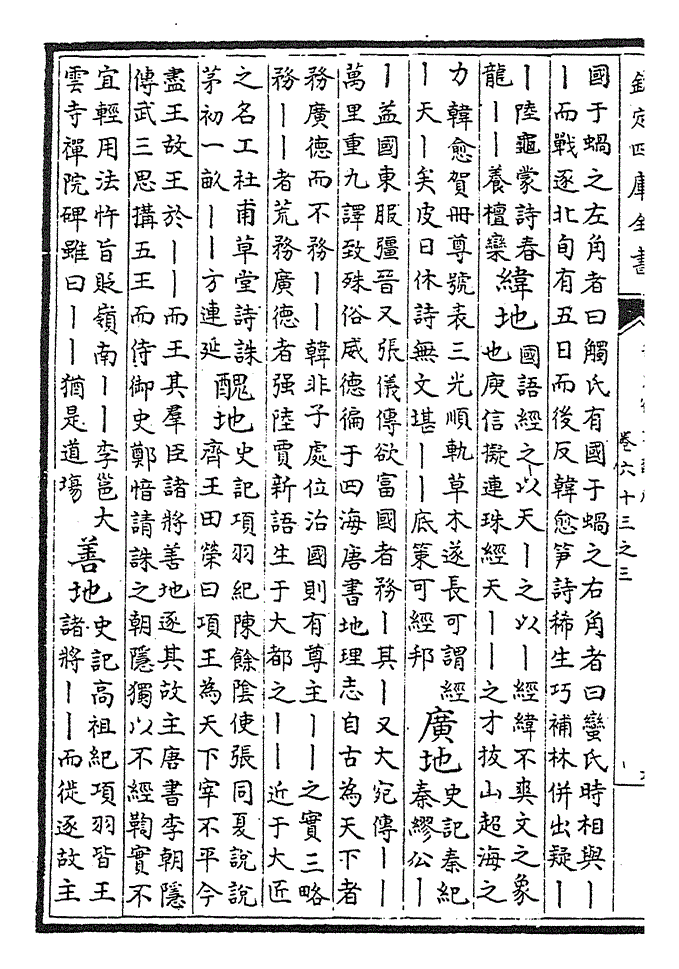 欽定四庫全書
卷六十三之三
國于蝸之左角者曰觸氏有國于蝸之右角者曰蠻氏時相與丨
丨而戰逐北旬有五日而後反韓愈笋詩稀生巧補林併出疑丨
丨陸龜蒙詩春
龍丨丨養檀欒
緯地
國語經之以天丨之以丨經緯不爽文之象
也庾信擬連珠經天丨丨之才拔山超海之
力韓愈賀冊尊號表三光順軌草木遂長可謂經
丨天丨矣皮日休詩無文堪丨丨底策可經邦
廣地
史記秦紀
秦繆公丨
丨益國東服彊晉又張儀傳欲富國者務丨其丨又大宛傳丨丨
萬里重九譯致殊俗威德徧于四海唐書地理志自古為天下者
務廣德而不務丨丨韓非子處位治國則有尊主丨丨之實三略
務丨丨者荒務廣德者强陸賈新語生于大都之丨丨近于大匠
之名工杜甫草堂詩誅
茅初一畝丨丨方連延
醜地
史記項羽紀陳餘陰使張同夏說說
齊王田榮曰項王為天下宰不平今
盡王故王於丨丨而王其羣臣諸將善地逐其故主唐書李朝隱
傳武三思搆五王而侍御史鄭愔請誅之朝隱獨以不經鞫實不
宜輕用法忤旨貶嶺南丨丨李邕大
雲寺禪院碑雖曰丨丨猶是道塲
善地
史記高祖紀項羽皆王
諸將丨丨而徙逐故主